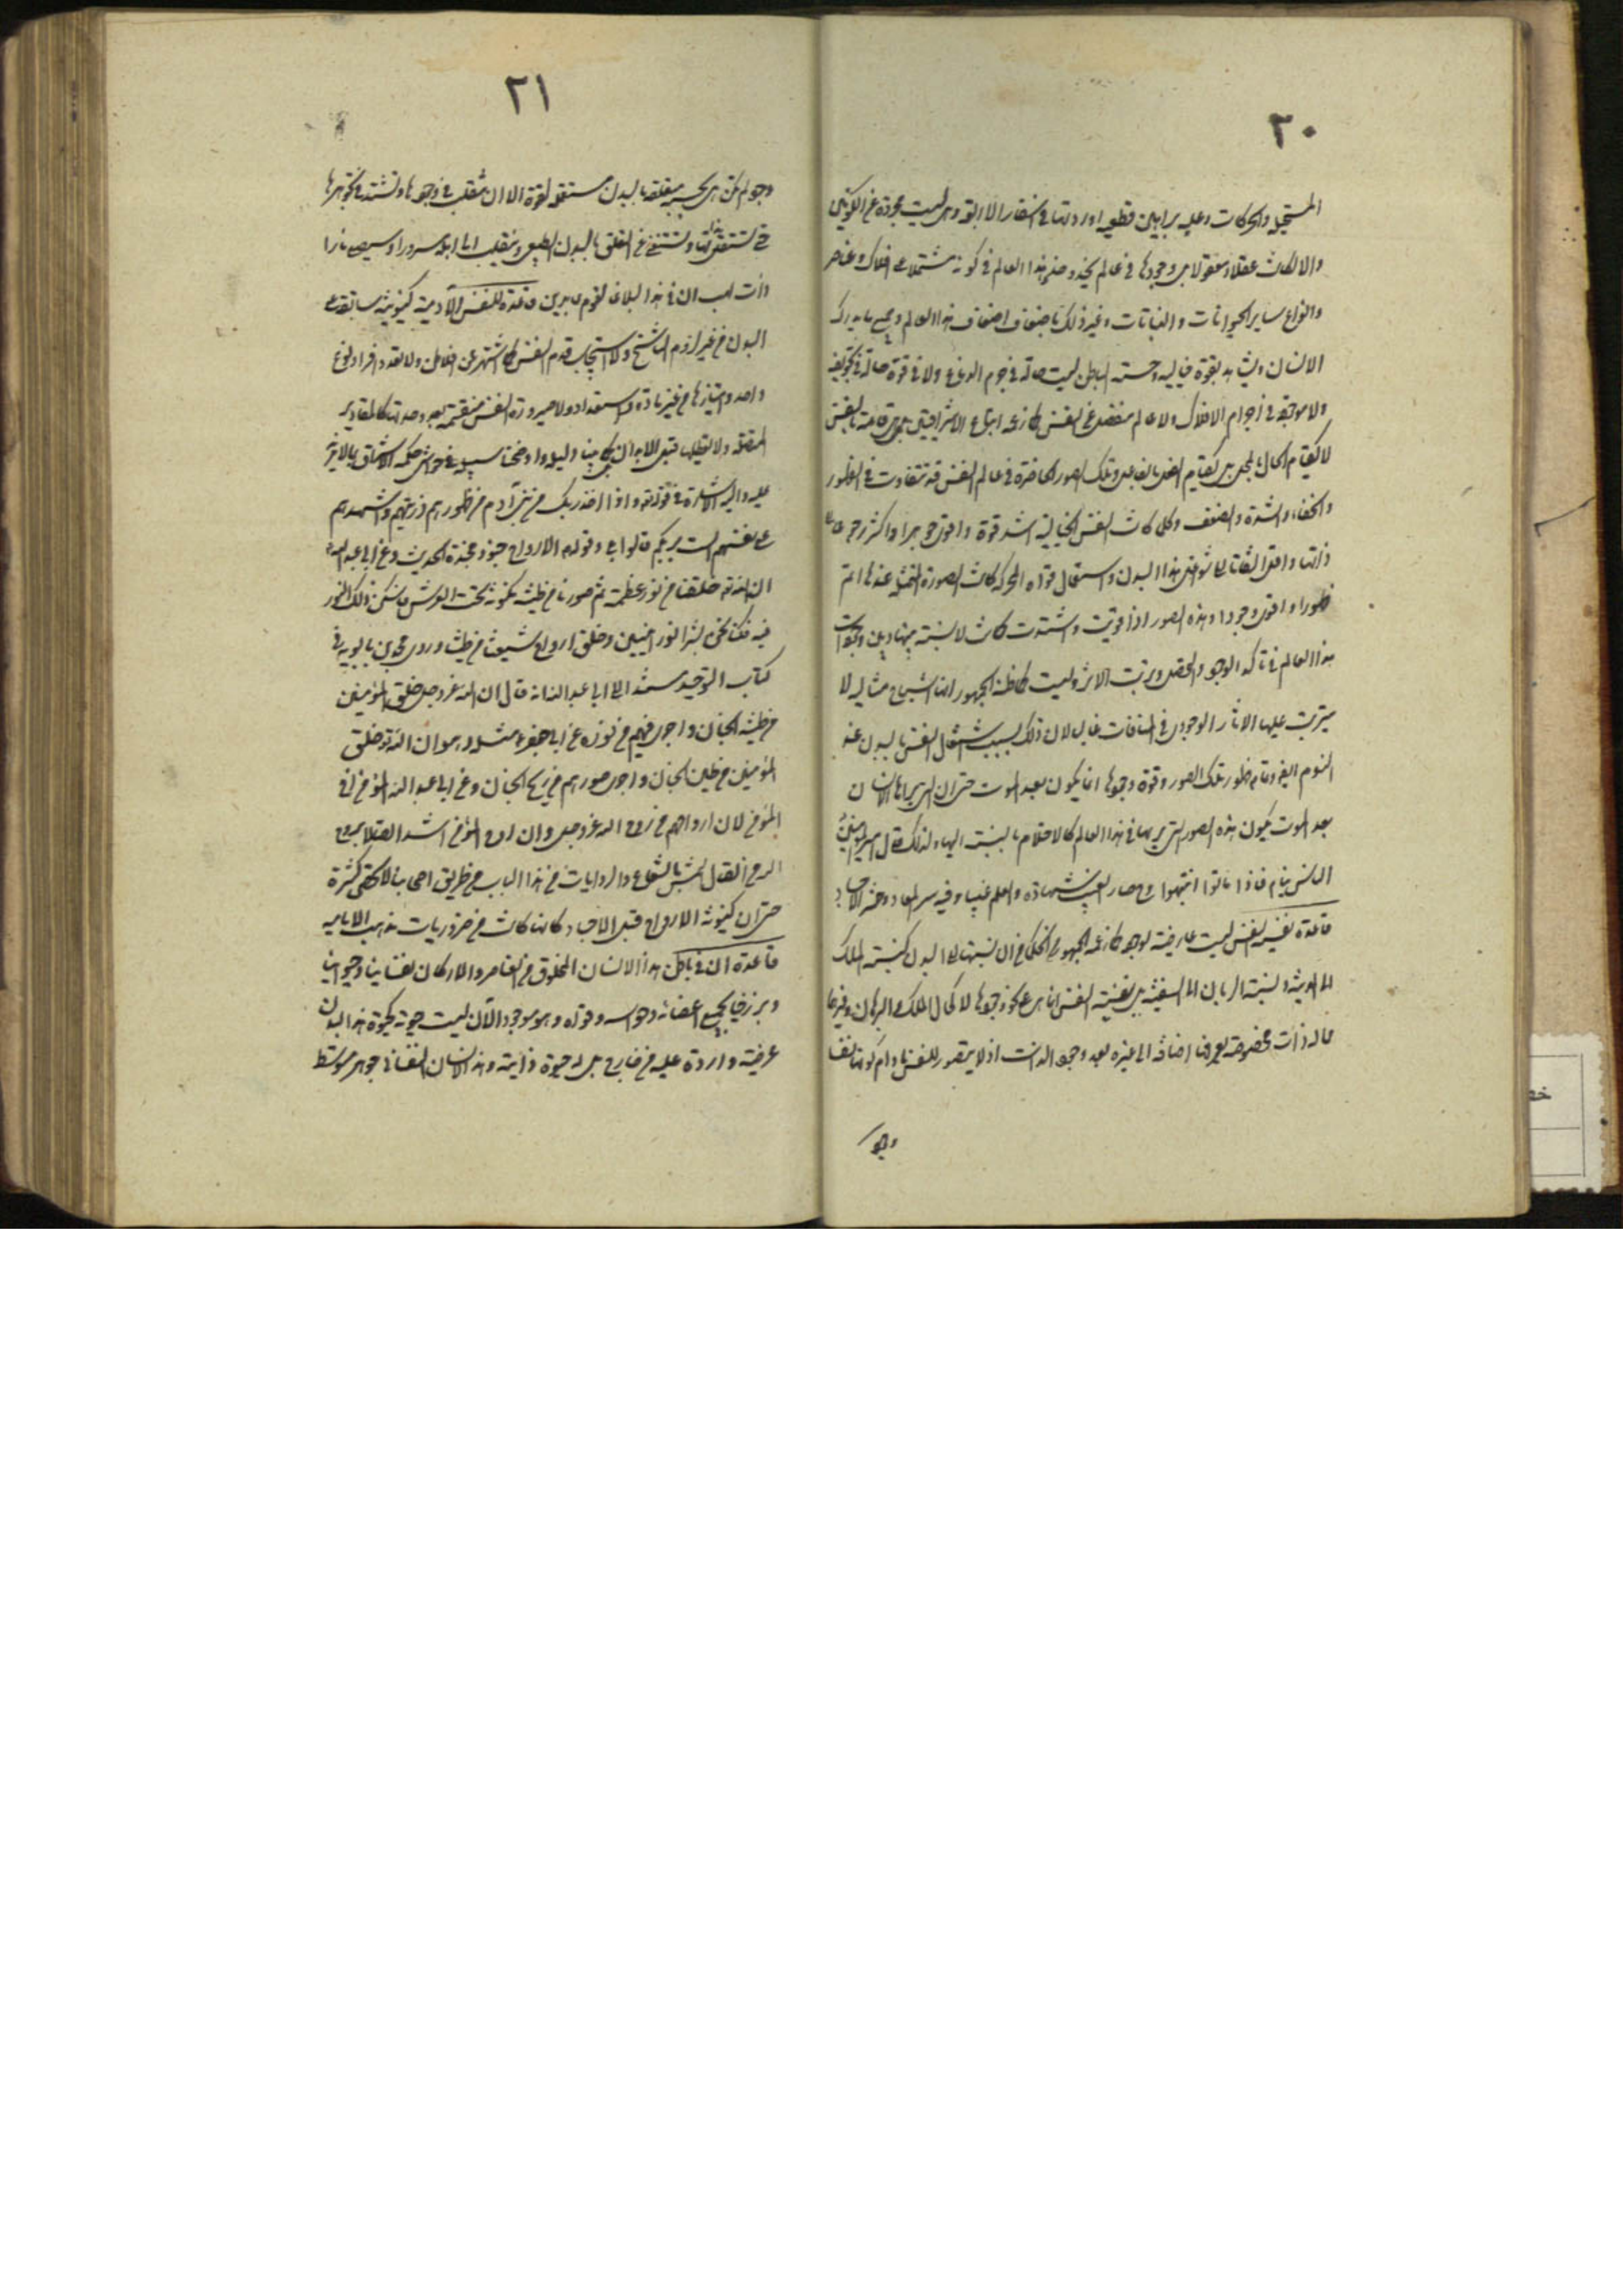 ٣٠
المستحيل والحركات وعليه براهين قطعية اوردناها في اسفارنا الاربعة وهي ليست مجردة عن الكونين
والا لكانت عقلا ومعقولا بل وجودها في عالم يحذو حذو هذا العالم في كونه مشتملا على افلاك وعناصر
وانواع ساير الحيوانات والنباتات وغير ذلك باضعاف اضعاف هذا العالم وجميع ما يدركه
الانسان ويشاهده بقوة خياليه وحسه الباطن ليست حالة في جرم الدماغ ولا في قوة حالة في تجويفه
ولا موجودة في اجرام الافلاك ولا في عالم منفصل عن النفس كما زعمه اتباع الاشراقيين بل هي قائمة بالنفس
لا كقيام الحال بالمحل بل كقيام الفعل بالفاعل وتلك الصور الحاضرة في عالم النفس قد تتفاوت في الظهور
والخفاء والشدة والضعف وكلما كانت النفس الخيالية اشد قوة واقوى جوهرا واكثر رجوعا الى
ذاتها واقل التفاتا الى شواغل هذا البدن واستعمال قواه المحركة كانت الصورة المتمثلة عندها اتم
ظهورا واقوى وجودا وهذه الصور اذا قويت واشتدت كانت لا نسبة بينها وبين موجودات
هذا العالم في تأكد الوجود والتحصل وترتب الاثر وليست كما ظنه الجمهور انها اشباح مثالية لا
يترتب عليها الاثار الوجودي في المنامات غالبا لان ذلك بسبب اشتغال النفس بالبدن عند
النوم ايضا وتمام ظهور تلك الصور وقوة وجودها انما يكون بعد الموت حتى ان التي يراها الانسان
بعد الموت يكون هذه الصور التي يريها في هذا العالم كالاحلام بالنسبة اليها ولذلك قال امير المؤمنين
الناس نيام فاذا ماتوا انتبهوا وح صار الغيب شهادة والعلم عينا وفيه سر المعاد وحشر الاجساد
قاعدة نفسية النفس ليست عارضة لوجودها كما زعمه الجمهور من الحكماء من ان نسبتها الى البدن كنسبة الملك
الى المدينة ونسبة الربان الى السفينة بل نفسية النفس انما هي نحو وجودها لا كحال الملك والربان وغيرهما
مما له ذات مخصوصة يعرضها اضافة الى غيره بعد وجود الذات اذ لا يتصور للنفس ما دام كونها نفسا
وجود
٢١
وجود لم تكن هي بحسبه متعلقة بالبدن مستعملة لقوة الا ان تنقلب في وجودها وتشتد في تجوهرها
حتى تستقل بذاتها وتستغني عن التعلق بالبدن الطبيعي وينقلب الى اهله مسرورا او سيصلى نارا
ذات لهب ان في هذا لبلاغا لقوم عابدين قاعدة للنفس الآدمية كينونية سابقة على
البدن من غير لزوم التناسخ ولا استيجاب قدم النفس كما اشتهر عن افلاطن ولا تعدد افراد نوع
واحد وامتيازها من غير مادة واستعداد ولا صيرورة النفس منقسمة بعد وحدتها كالمقادير
المتصلة ولا تعطيلها قبل الابدان كما بينا دليله واوضحنا سبيله في حواشي حكمة الاشراق بما لا مزيد
عليه واليه الاشارة في قوله تع واذ اخذ ربك من بني آدم من ظهورهم ذريتهم واشهدهم
على انفسهم الست بربكم قالوا بلى وقوله الارواح جنود مجندة الحديث وعن ابي عبد الله
ان الله تع خلقنا من نور عظمته ثم صورنا من طينة مكنونة تحت العرش فاسكن ذلك النور
فيه فكنا نحن بشرا نورانيين وخلق ارواح شيعتنا من طينتنا وروى محمد بن بابويه في
كتاب التوحيد مسندا الى ابي عبد الله انه قال ان الله عز وجل خلق المؤمنين
من طينة الجنان واجرى فيهم من نوره عن ابي جعفر مثله وهو ان الله تع خلق
المؤمنين من طين الجنان واجرى صورهم من ريح الجنان وعن ابي عبد الله المؤمن اخو
المؤمن لان ارواحهم من روح الله عز وجل وان روح المؤمن اشد اتصالا بروح
الله من اتصال الشمس بالشعاع والروايات في هذا الباب من طريق اصحابنا لا تحصى كثرة
حتى ان كينونة الارواح قبل الاجساد كانها كانت من ضروريات مذهب الامامية
قاعدة ان في باطن هذا الانسان المخلوق من العناصر والاركان نفسانيا وحيوانيا
وبرزخيا بجميع اعضائه وحواسه وقواه وهو موجود الآن ليست حيوته كحيوة هذا البدن
عرضية واردة عليه من خارج بل له حيوة ذاتية وهذا الانسان النفساني جوهر متوسط